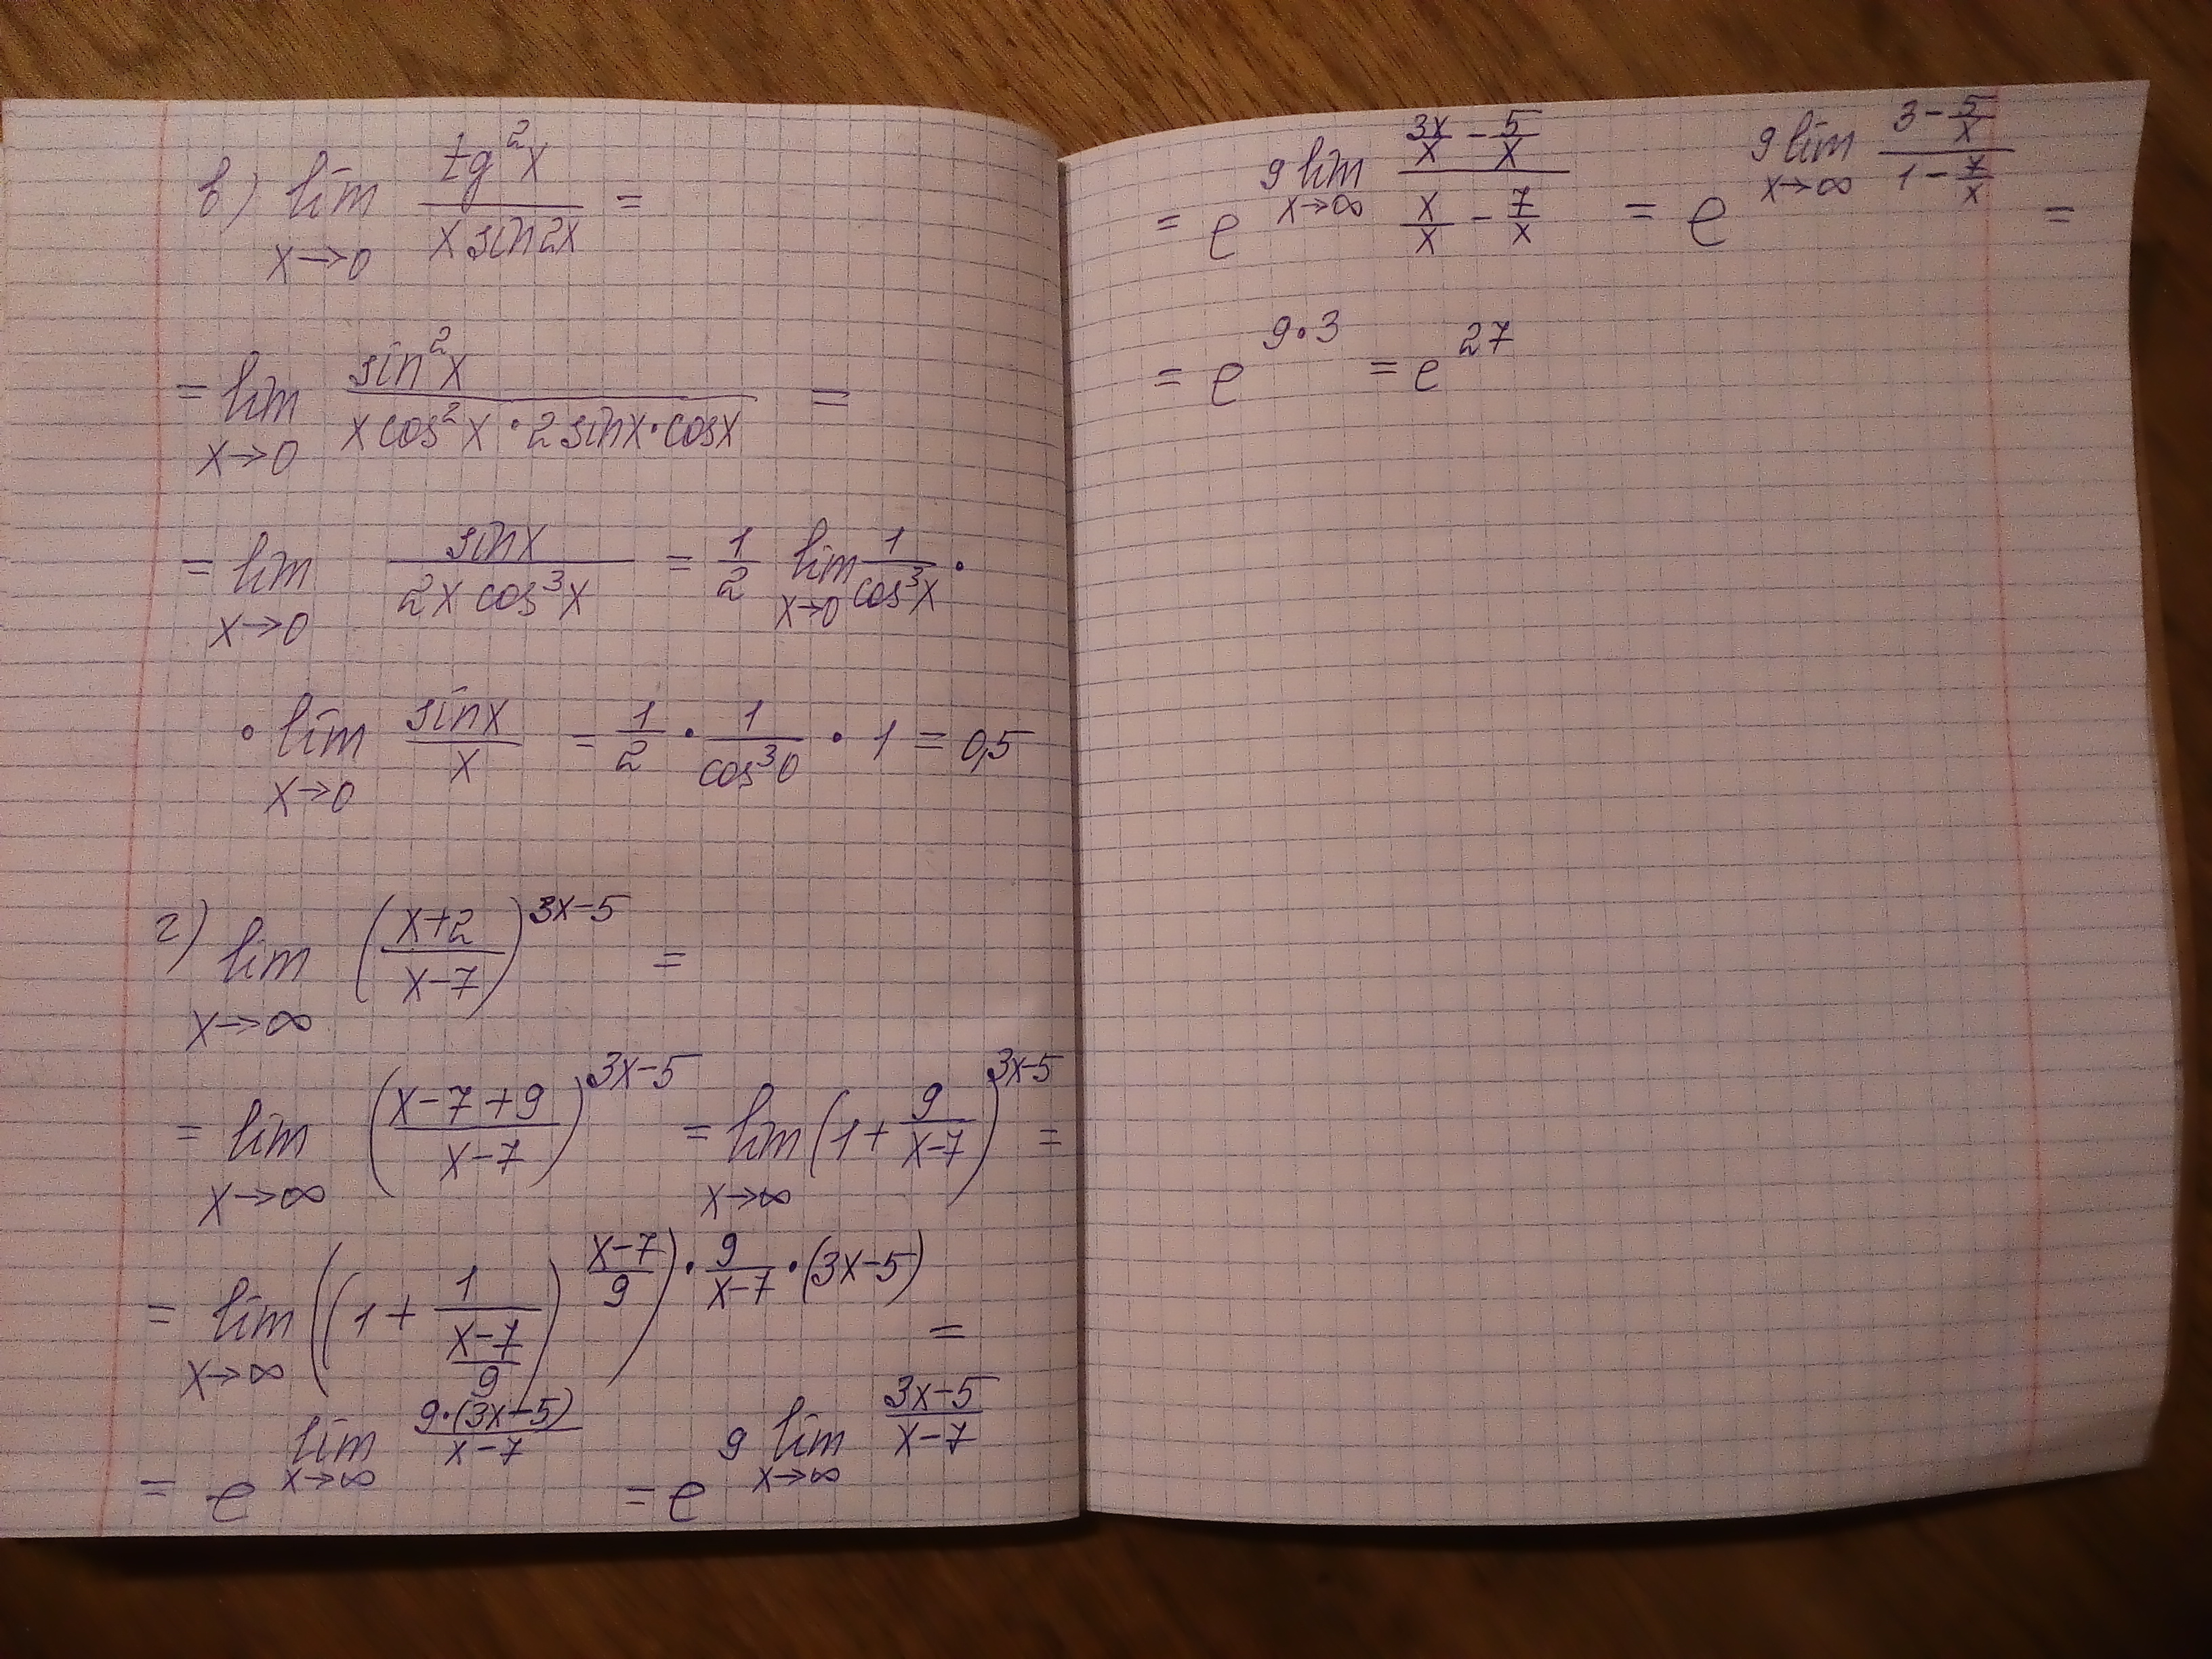 в) lim x→0 tg²x / (x sin2x) =
= lim x→0 sin²x / (x cos²x · 2 sinx · cosx) =
= lim x→0 sinx / (2x cos³x) = 1/2 lim x→0 1/cos³x ·
· lim x→0 sinx/x = 1/2 · 1/cos³0 · 1 = 0,5
г) lim x→∞ ((x+2)/(x-7))^(3x-5) =
= lim x→∞ ((x-7+9)/(x-7))^(3x-5) = lim x→∞ (1 + 9/(x-7))^(3x-5) =
= lim x→∞ ((1 + 1/((x-7)/9))^((x-7)/9))^(· 9/(x-7) · (3x-5)) =
= e^(lim x→∞ 9·(3x-5)/(x-7)) = e^(9 lim x→∞ (3x-5)/(x-7))
= e^(9 lim x→∞ (3x/x - 5/x)/(x/x - 7/x)) = e^(9 lim x→∞ (3 - 5/x)/(1 - 7/x)) =
= e^(9·3) = e^27